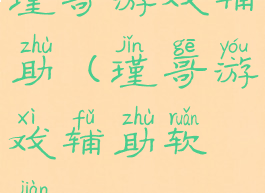 瑾哥游戏辅
zhù jǐn gē yóu
助（瑾哥游
xì fǔ zhù ruǎn
戏辅助软
jiàn